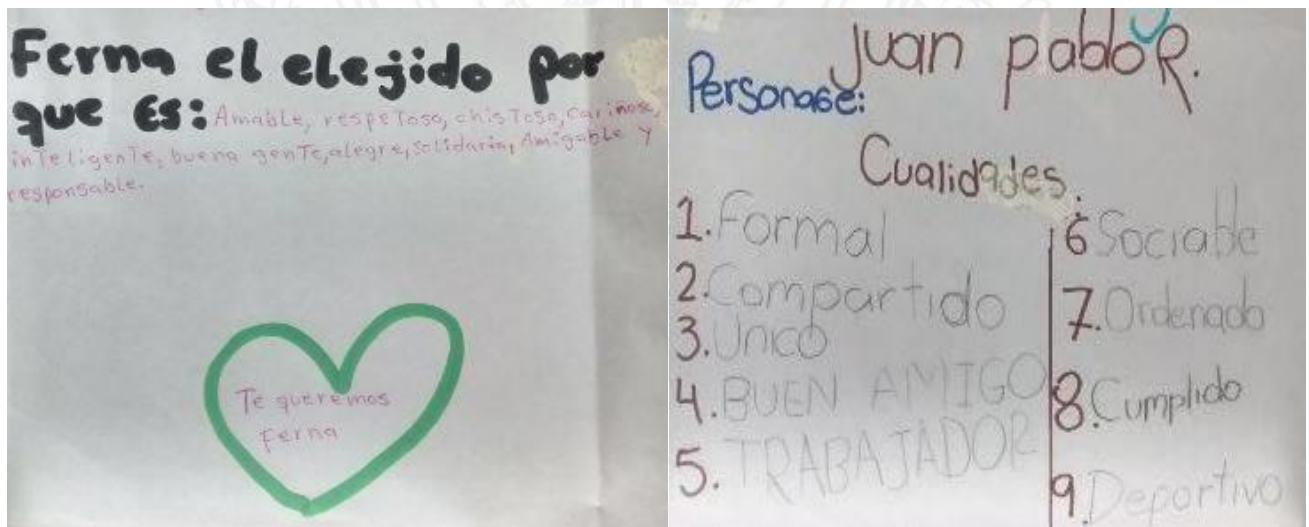 Ferna el elejido por
que Es: Amable, respetoso, chistoso, cariñoso,
inteligente, buena gente, alegre, solidario, Amigable y
responsable.
Te queremos
ferna
Juan pablo R.
Personase:
Cualidades.
1. Formal
2. Compartido
3. Unico
4. BUEN AMIGO
5. TRABAJADOR
6 Sociable
7. Ordenado
8. Cumplido
9. Deportivo